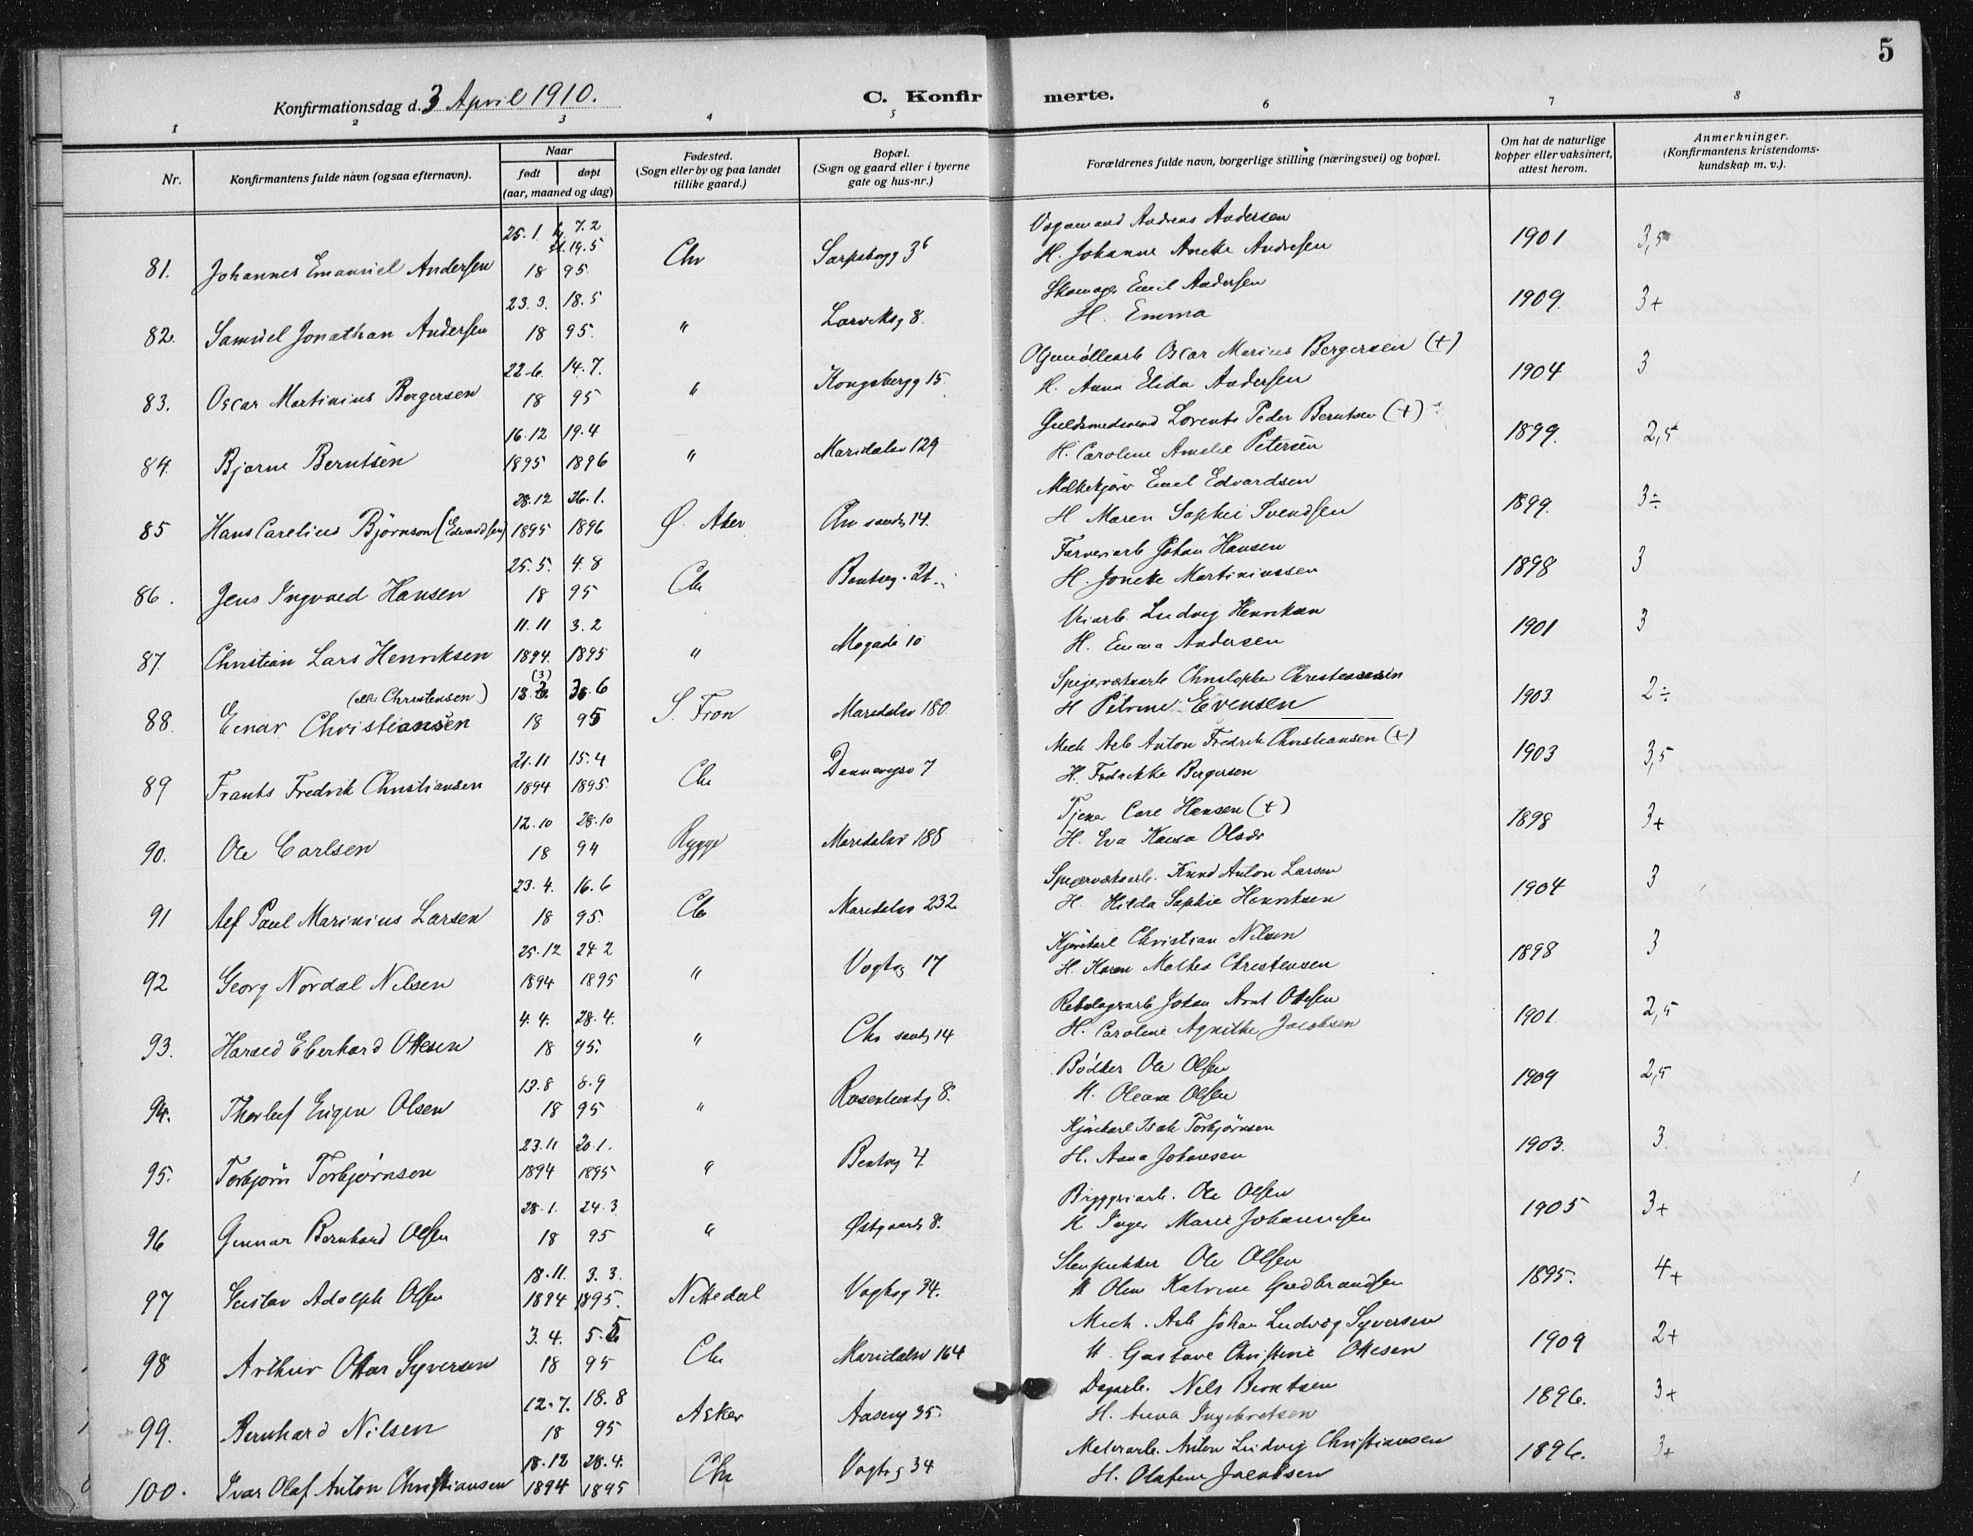 5
Konfirmationsdag d. 3 April 1910.
C. Konfir merte.
1 2 3 4 5 6 7 8
Nr.
Konfirmantens fulde navn (ogsaa efternavn).
Naar
født døpt
(aar, maaned og dag)
Fødested.
(Sogn eller by og paa landet
tillike gaard.)
Bopæl.
(Sogn og gaard eller i byerne
gate og hus-nr.)
Forældrenes fulde navn, borgerlige stilling (næringsvei) og bopæl.
Om hat de naturlige
kopper eller vaksinert,
attest herom.
Anmerkninger.
(Konfirmantens kristendoms-
kundskap m. v.).
25.1 7.2 Andreas Andersen
st. 19.5
81. Johannes Emanuel Andersen 18 95 Chr Sarpsborgg 36 H. Johanne Andresen 1901 3,5
23.3. 18.5 Skomager Emil Andersen
82. Samuel Jonathan Andersen 18 95. " Larviksg 8. H. Emma 1909. 3+
22.6. 14.7. Oscar Marius Bergersen (+)
83. Oscar Martinius Bergersen 18 95 " Kongsbergg 15. H. Anna Elida Andersen 1904 3
16.12 19.4 Guldsmedsvend Lorents Peder Berntsen (+)
84. Bjarne Berntsen 1895 1896 " Maridalsv 129 H. Caroline Amalie Petersen 1899. 2,5
28.12 26.1. Melkekjører Emil Edvardsen
85 Hans Carelius Bjørnson (Edvardsen) 1895 1896 Ø. Aker Chr sandg 14. H Maren Sophie Svendsen 1899. 3÷
25.5. 4.8 Farveriarb Johan Hansen
86. Jens Ingvald Hansen 18 95 Chr Bentseg. 21 H. Martiniussen 1898 3
11.11 3.2 Ludvig Henriksen
87. Christian Lars Henriksen 1894. 1895 " Mogade 10 H. Emma Andersen 1901 3
(eller Christensen) (3) 13. 30.6 Spigerværksarb Christopher Christensen
88. Einar Christiansen 18 95 S. Fron Maridalsv 180. H Pilrine Evensen 1903 2÷
21.11 15.4 Mek Arb Anton Fredrik Christiansen (+)
89 Frants Fredrik Christiansen 1894 1895. Chr Dannevigsv 7 H. Fredrikke Bergersen 1903 3,5
12.10 28.10 Tjener Carl Hansen (+)
90. Ole Carlsen 18 94 Rygge Maridalsv 188 H. Eva Olsdr 1898 3+
23.4. 16.6 Spigerværksarb. Knud Anton Larsen
91 Alf Paul Marinius Larsen 18 95. Chr Maridalsv 232 H. Hilda Sophie Henriksen 1904 3
25.12 24.2 Kjørekarl Christian Nilsen
92 Georg Nordal Nilsen 1894 1895 " Vogtsg 17 H. Karen Mathea Christensen 1898 3
4.4. 28.4. Rebslagerarb Johan Arnt Ottesen
93. Harald Eberhard Ottesen 18 95. " Chr sandg 14 H. Caroline Agnethe Jacobsen 1901. 2,5
13.8 8.9 Bødker Ole Olsen
94. Thorleif Eugen Olsen 18 95 " Rosenlundg 8. H. Oleane Olsen 1909 2,5
23.11 20.1. Kjørekarl Isak Torbjørnsen
95. Torbjørn Torbjørnsen 1894 1895 " Bentseg 4. H. Anna Johnesen 1903. 3.
28.1. 24.3 Bryggeriarb. Ole Olsen
96 Gunnar Bernhard Olsen 18 95 " Østgaardg 8. H Inger Marie Johannesen 1905 3+
18.11. 3.3. Stenpukker Ole Olsen
97 Gustav Adolph Olsen 1894 1895. Nittedal Vogtsg 34. H Oline Katrine Gudbrandsen 1895. 4+
3.4. 5.5 Mech. Arb Johan Ludvig Syversen
98 Arthur Ottar Syversen 18 95 Chr Maridalsv 164 H. Gustava Christine Ottesen 1909 2+
12.7. 18.8 Dagarb. Nils Berntsen
99. Bernhard Nilsen 18 95 Asker Aaseng 35. H. Anna Ingebretsen 1896. 3+
18.12 28.4. Malerarb. Anton Ludvig Christiansen
100. Ivar Olaf Anton Christiansen 1894 1895 Chr Vogtsg 34 H. Olufine Jacobsen 1896. 3+